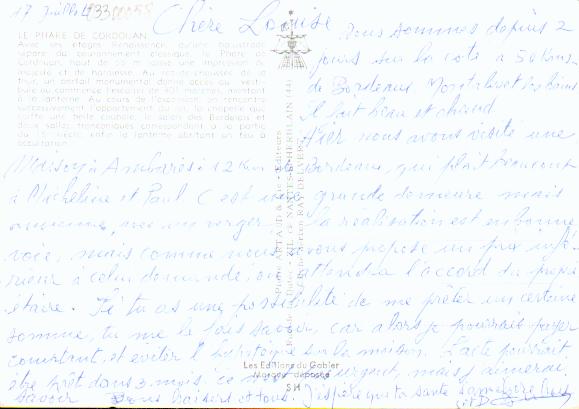 17 Juillet
Chère Louise
LE PHARE DE CORDOUAN
Avec ses étages Renaissance, qu'une balustrade
sépare du couronnement classique, le Phare de
Cordouan, haut de m laisse une impression de
majesté et de harnonie. Au rez-de-chaussée de la
tour, un portail monumental donne accès au vesti-
bule où commence l'escalier de 301 marches, montant
à la lanterne. Au cours de l'ascension, on rencontre
successivement l'appartement du roi, la chapelle que
coiffe une belle coupole, le salon des Bordelais et
deux salles tronconiques correspondent à la partie
du siècle, enfin la lanterne abritant un feu à
occultation.
Nous sommes depuis 2
jours sur la côte à 50 kms
de Bordeaux Montalivet les bains
Il fait beau et chaud.
Hier nous avons visité une
Maison à Ambarès à 12 km de Bordeaux, qui plait beaucoup
à Micheline et Paul C'est une grande demeure mais
ancienne, avec un verger. la réalisation est en bonne
voie, mais comme nous avons proposé un prix infé-
rieur à celui demandé, on attend l'accord du propri
étaire. Si tu as une possibilité de me prêter une certaine
somme, tu me le fais savoir, car alors je pourrais payer
comptant, et éviter l'hypothèque sur la maison. L'acte pourrait
être prêt dans 3 mois, ce urgent, mais j'aimerai
savoir Bons baisers à tous. J'espère que ta santé
Les Editions du Gabier
Marque déposée
S H